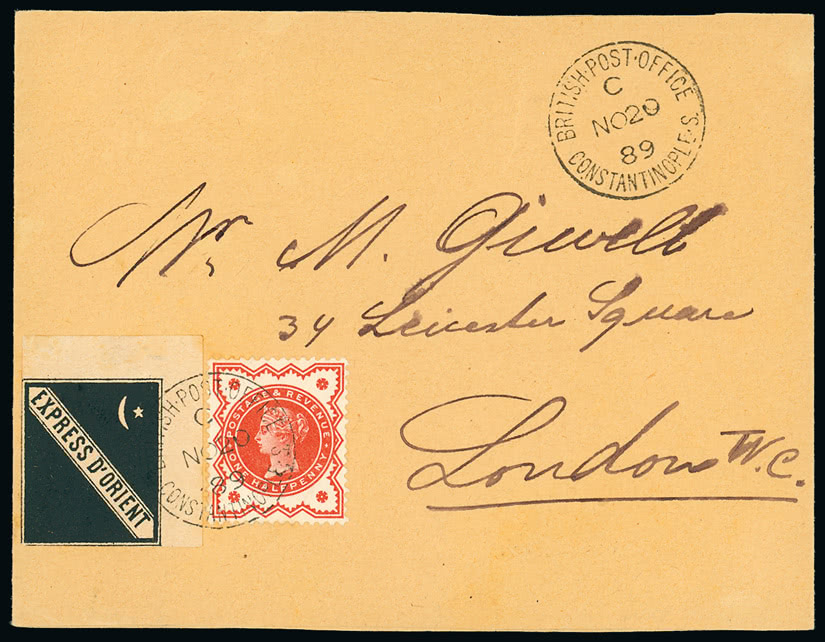 BRITISH·POST·OFFICE
C
NO20
89
CONSTANTINOPLE·S.
Mr. M. Giwell
34 Leicester Square
London W.C.
EXPRESS D'ORIENT
POSTAGE & REVENUE
ONE HALFPENNY
BRITISH·POST·OFFICE
C
NO20
89
CONSTANTINOPLE·S.